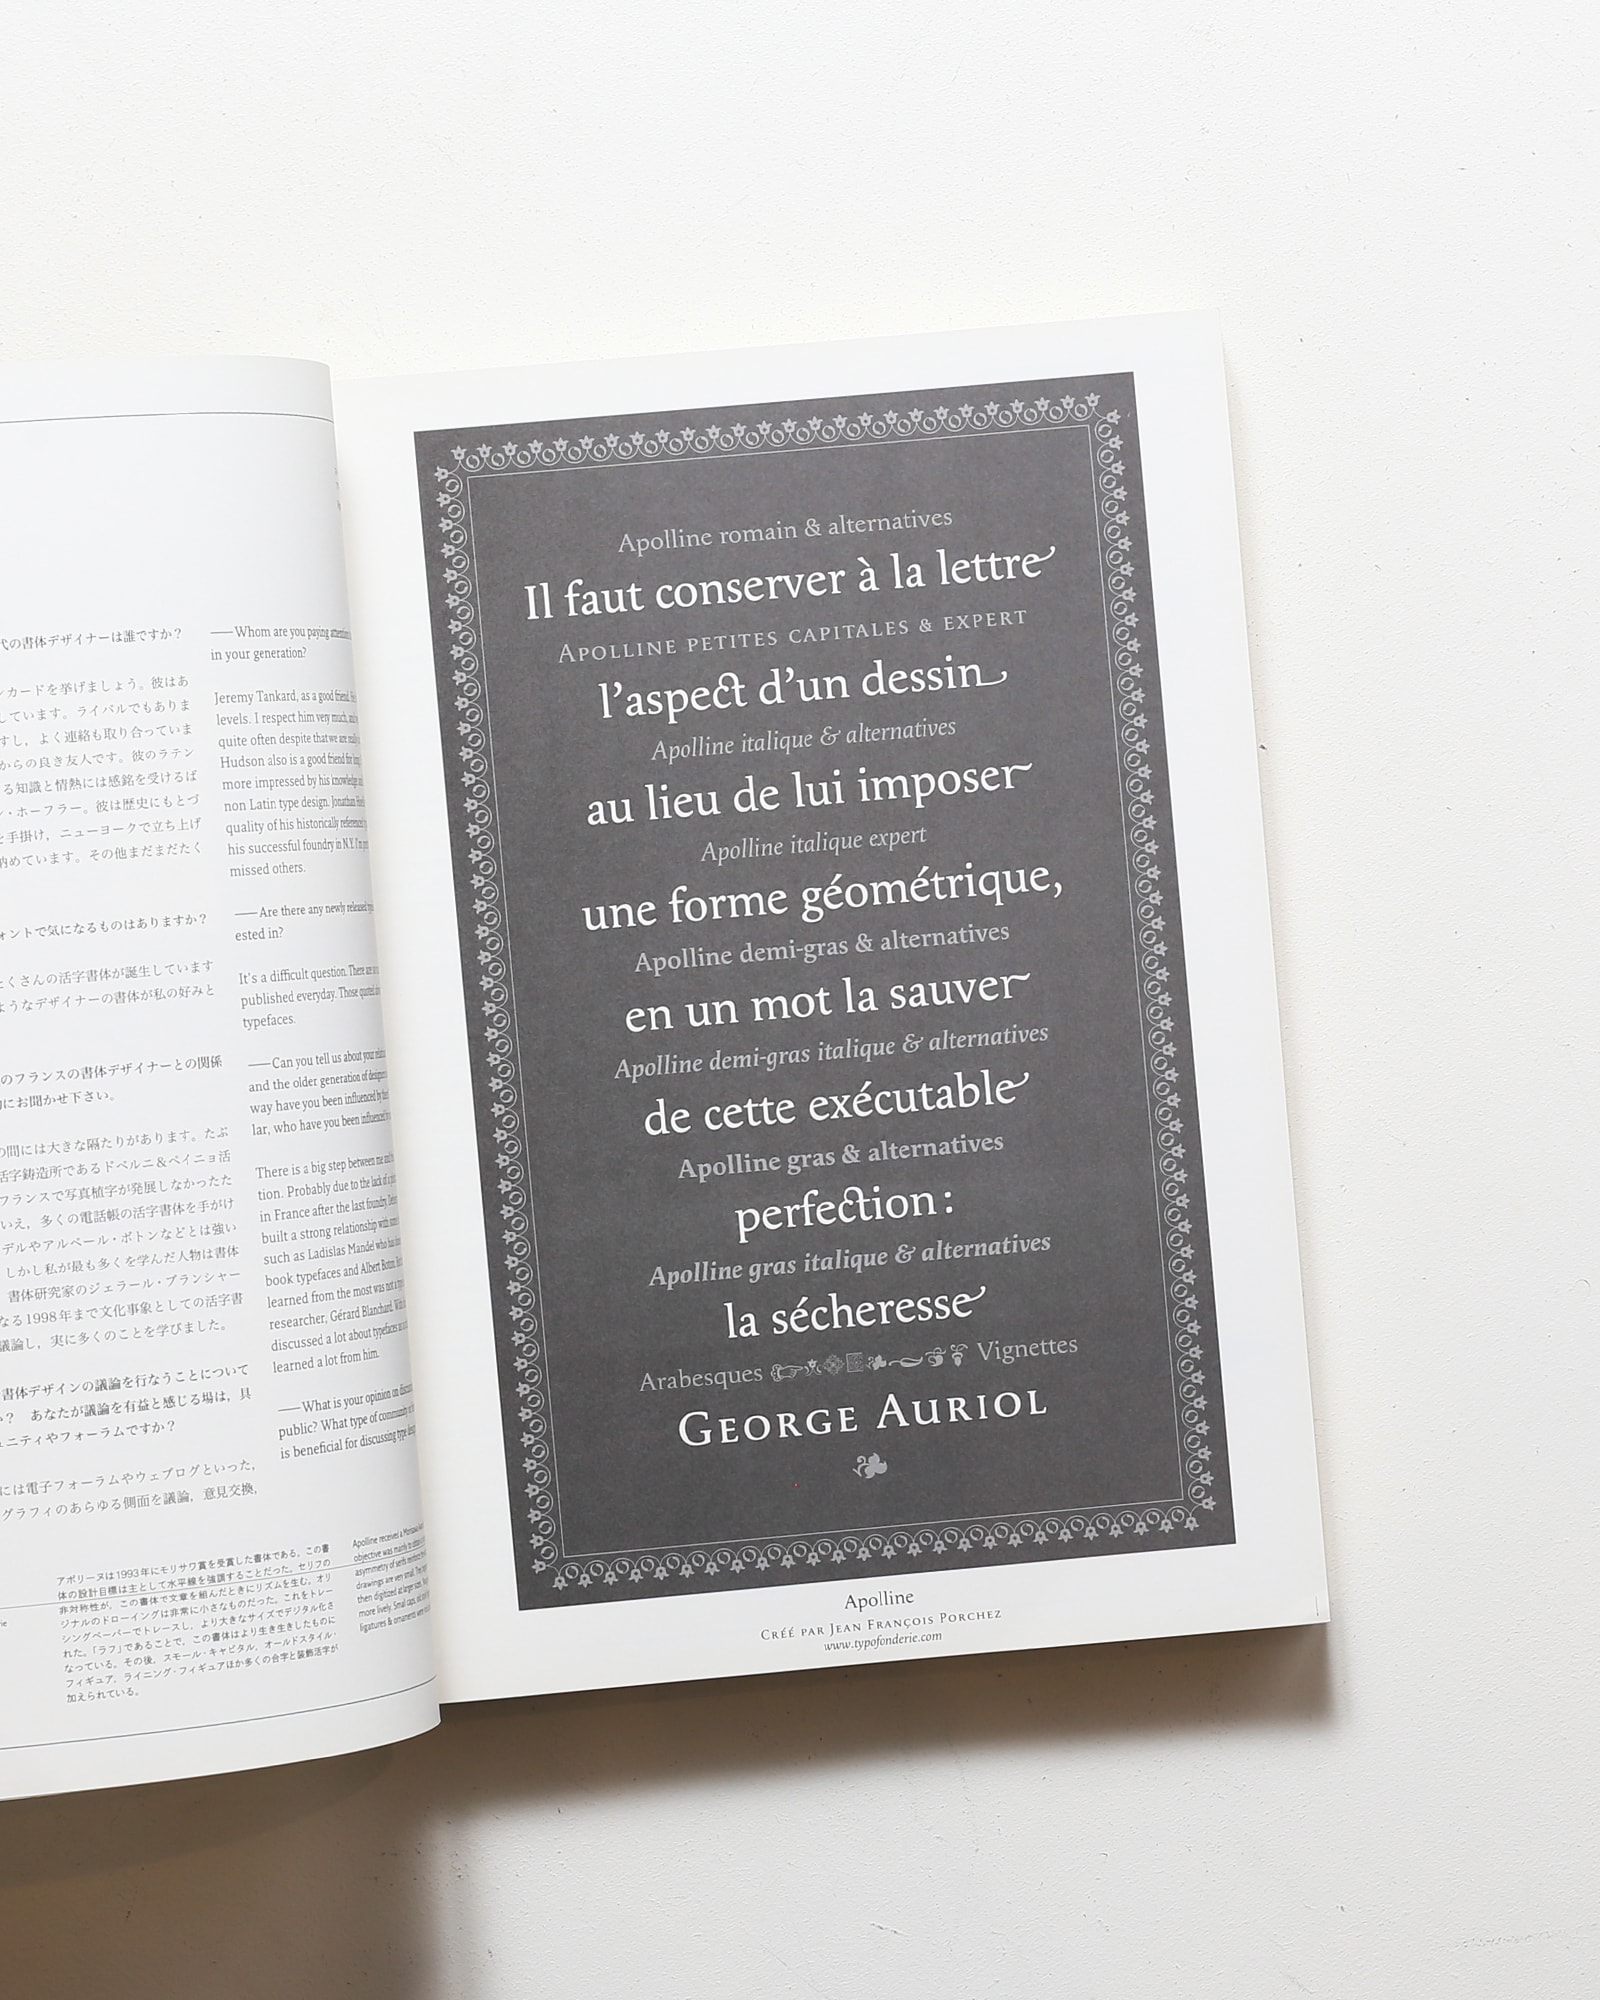 代の書体デザイナーは誰ですか？
カードを挙げましょう。彼はあ
しています。ライバルでもありま
すし，よく連絡も取り合っていま
からの良き友人です。彼のラテン
る知識と情熱には感銘を受けるば
ン・ホーフラー。彼は歴史にもとづ
を手掛け，ニューヨークで立ち上げ
納めています。その他まだまだたく
ォントで気になるものはありますか？
たくさんの活字書体が誕生しています
ようなデザイナーの書体が私の好みと
のフランスの書体デザイナーとの関係
的にお聞かせ下さい。
の間には大きな隔たりがあります。たぶ
活字鋳造所であるドベルニ＆ペイニョ活
フランスで写真植字が発展しなかったた
いえ，多くの電話帳の活字書体を手がけ
デルやアルベール・ボトンなどとは強い
しかし私が最も多くを学んだ人物は書体
書体研究家のジェラール・ブランシャー
なる1998年まで文化事象としての活字書
議論し，実に多くのことを学びました。
書体デザインの議論を行なうことについて
か？　あなたが議論を有益と感じる場は，具
ュニティやフォーラムですか？
には電子フォーラムやウェブログといった，
グラフィのあらゆる側面を議論，意見交換，
——Whom are you paying attention
in your generation?
Jeremy Tankard, as a good friend.
levels. I respect him very much,
quite often despite that we are
Hudson also is a good friend for
more impressed by his knowledge
non Latin type design. Jonathan
quality of his historically
his successful foundry in N.Y. I'm
missed others.
——Are there any newly released
ested in?
It's a difficult question. There are
published everyday. Those quoted
typefaces.
——Can you tell us about your
and the older generation of
way have you been influenced by
lar, who have you been influenced
There is a big step between me and
tion. Probably due to the lack of
in France after the last foundry,
built a strong relationship with
such as Ladislas Mandel who has
book typefaces and Albert Boton.
learned from the most was not a
researcher, Gérard Blanchard.
discussed a lot about typefaces
learned a lot from him.
——What is your opinion on
public? What type of community
is beneficial for discussing type
アポリーヌは1993年にモリサワ賞を受賞した書体である。この書
体の設計目標は主として水平線を強調することだった。セリフの
非対称性が，この書体で文章を組んだときにリズムを生む。オリ
ジナルのドローイングは非常に小さなものだった。これをトレー
シングペーパーでトレースし，より大きなサイズでデジタル化さ
れた。「ラフ」であることで，この書体はより生き生きしたものに
なっている。その後，スモール・キャピタル，オールドスタイル・
フィギュア，ライニング・フィギュアほか多くの合字と装飾活字が
加えられている。
Apolline received a Morisawa
objective was mainly to
asymmetry of serifs
drawings are very small. They
then digitized at larger sizes.
more lively. Small caps,
ligatures & ornaments were
Apolline romain & alternatives
Il faut conserver à la lettre
APOLLINE PETITES CAPITALES & EXPERT
l’aspect d’un dessin
Apolline italique & alternatives
au lieu de lui imposer
Apolline italique expert
une forme géométrique,
Apolline demi-gras & alternatives
en un mot la sauver
Apolline demi-gras italique & alternatives
de cette exécutable
Apolline gras & alternatives
perfection :
Apolline gras italique & alternatives
la sécheresse
Arabesques Vignettes
GEORGE AURIOL
Apolline
CRÉÉ PAR JEAN FRANÇOIS PORCHEZ
www.typofonderie.com